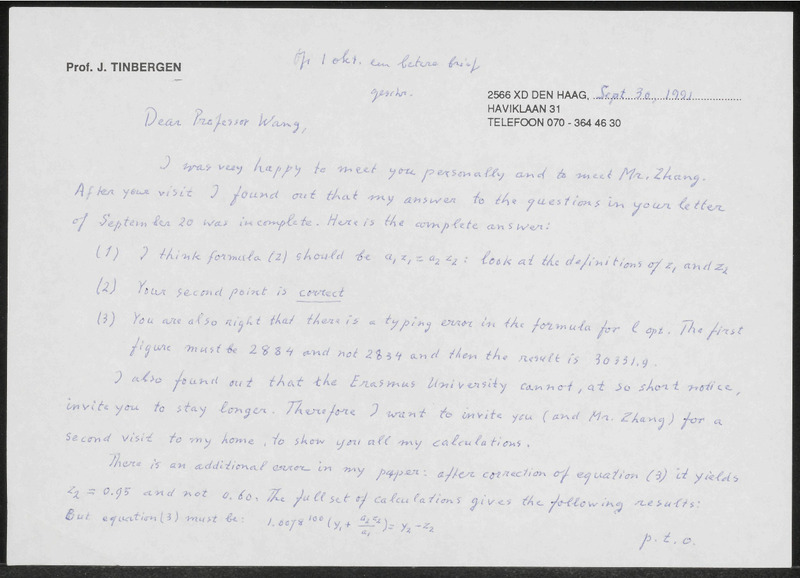 Prof. J. TINBERGEN
Op 1 okt. een betere brief
geschr.
2566 XD DEN HAAG, Sept 30, 1991
HAVIKLAAN 31
TELEFOON 070 - 364 46 30
Dear Professor Wang,
I was very happy to meet you personally and to meet Mr. Zhang.
After your visit I found out that my answer to the questions in your letter
of September 20 was incomplete. Here is the complete answer:
(1) I think formula (2) should be a₁z₁ = a₂z₂: look at the definitions of z₁ and z₂
(2) Your second point is correct
(3) You are also right that there is a typing error in the formula for l opt. The first
figure must be 2884 and not 2834 and then the result is 30331.9.
I also found out that the Erasmus University cannot, at so short notice,
invite you to stay longer. Therefore I want to invite you (and Mr. Zhang) for a
second visit to my home, to show you all my calculations.
There is an additional error in my paper: after correction of equation (3) it yields
z₂ = 0.95 and not 0.60. The full set of calculations gives the following results:
But equation (3) must be: (y₁ + a₂z₂/a₁) = y₂ - z₂
p.t.o.